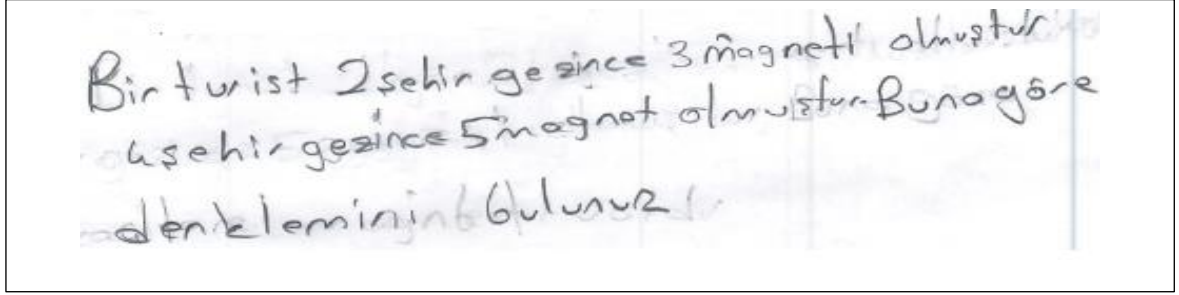 Bir turist 2 şehir gezince 3 magneti olmuştur
4 şehir gezince 5 magnet olmuştur. Buna göre
denkleminin bulunuz.